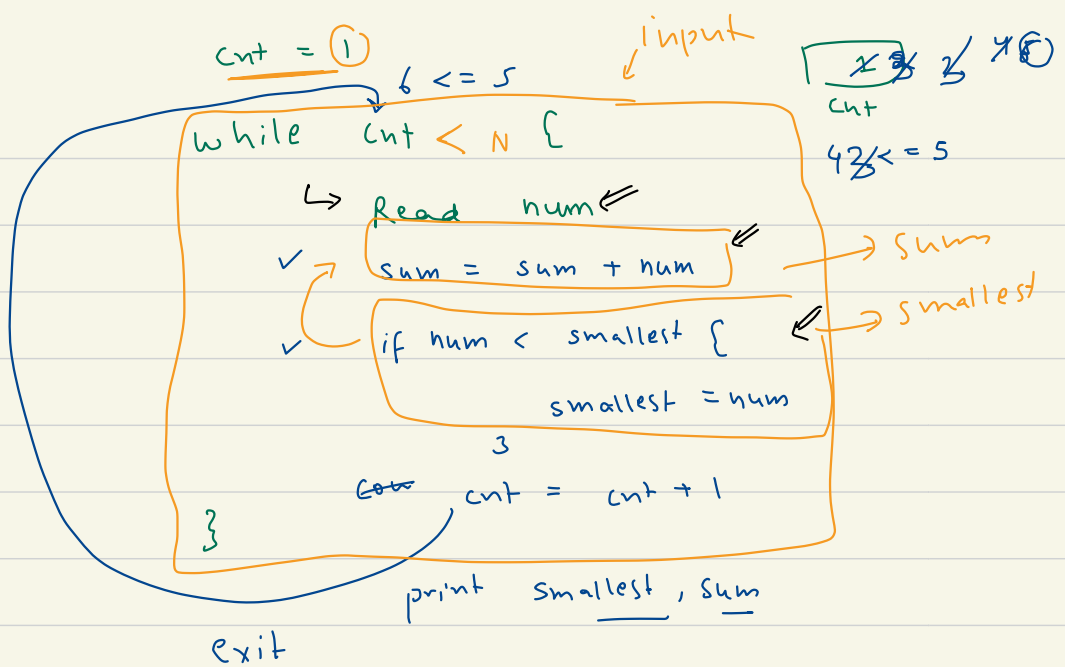 cnt = 1
input
6 <= 5
1 2 3 4 5
cnt
while cnt < N {
4 <= 5
Read num
sum = sum + num
sum
if num < smallest {
smallest
smallest = num
}
cnt = cnt + 1
}
print smallest, sum
exit